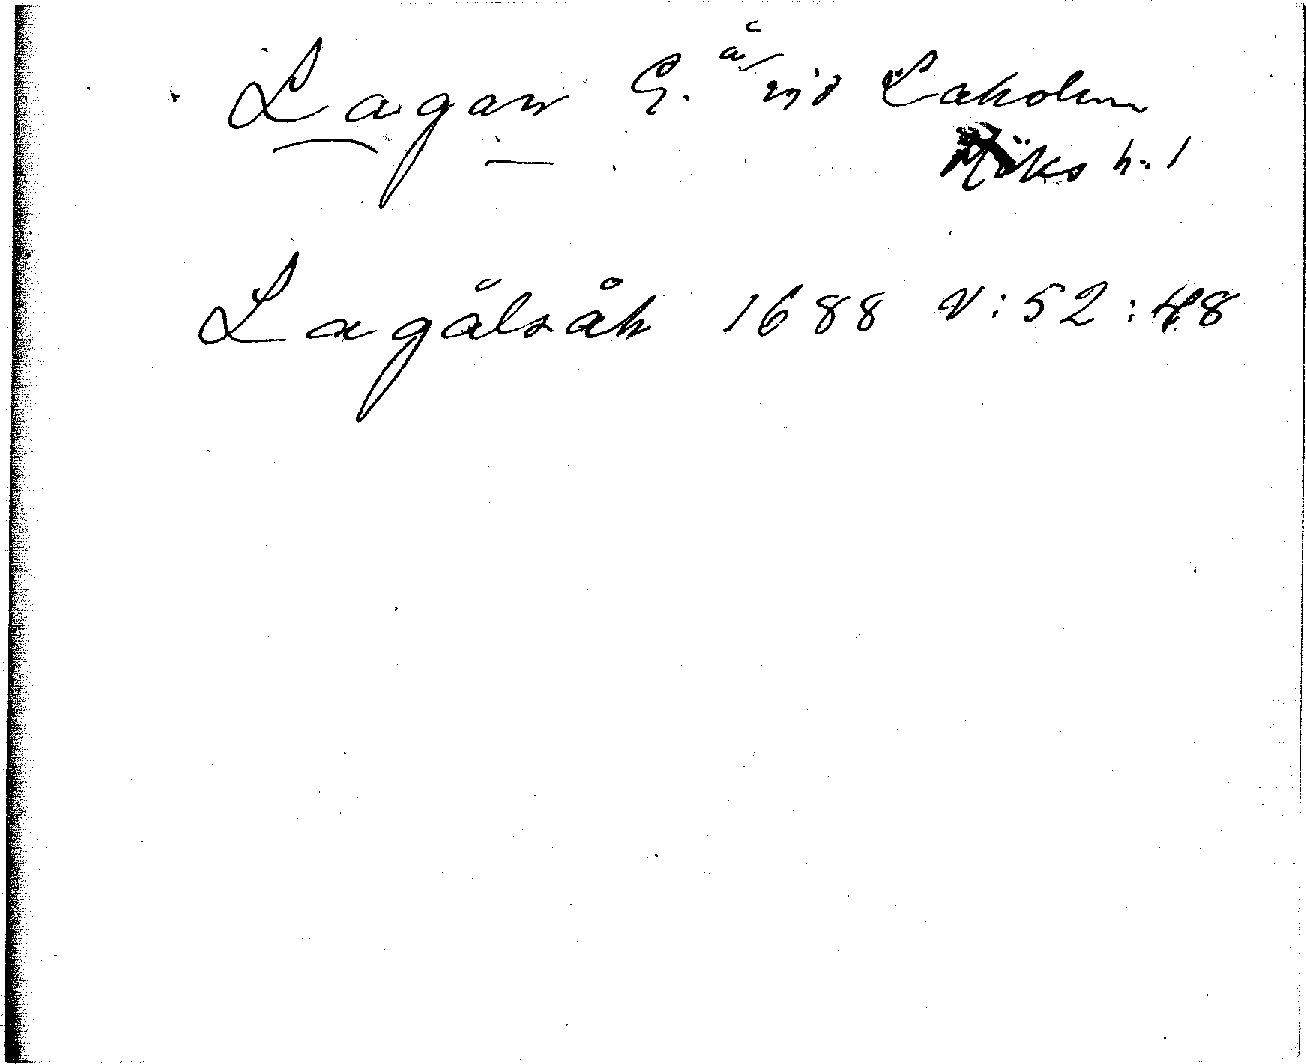 Lagan G. å vid Laholm
Höks h. 1
Lagålsåh 1688 V:52:48